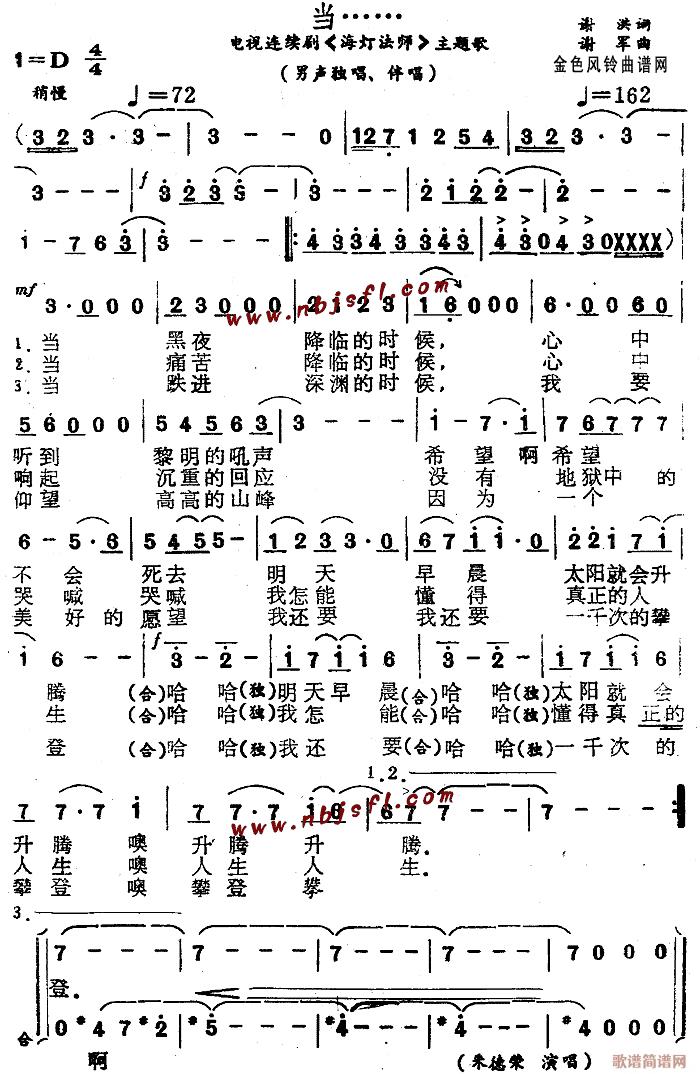 当……
电视连续剧《海灯法师》主题歌
谢洪词
谢军曲
金色风铃曲谱网
1=D 4/4
(男声独唱、伴唱)
稍慢 ♩=72 ♩=162
(3 2 3 · 3 - | 3 - - 0 | 1 2 2 · 7 1 2 5 4 | 3 2 3 · 3 - |
3 - - - | f 3 2 3 3 - | 3 - - - | 2 1 2 2 - | 2 - - -
1 - 7 6 3 | 3 - - - |: 4 3 3 4 3 3 4 3 | 4 3 0 4 3 0 X X X X )
www.nbjsfl.com
mf 3 · 0 0 0 | 2 3 0 0 0 0 | 2 1 2 3 | 1 6 0 0 0 | 6 · 0 0 6 0
1.当 黑夜 降临的时候, 心中
2.当 痛苦 降临的时候, 心中
3.当 跌进 深渊的时候, 我要
5 6 0 0 0 | 5 4 5 6 3 | 3 - - - | 1 - 7 · 1 | 7 6 7 7 7
听到 黎明的吼声 希望啊希望
响起 沉重的回应 没有地狱中的
仰望 高高的山峰 因为一个
6 - 5 · 5 | 5 4 5 5 - | 1 2 3 3 · 0 | 6 7 1 1 · 0 | 2 2 1 7 1
不会死去 明天早晨 太阳就会升
哭喊哭喊 我怎能懂得 真正的人
美好的愿望 我还要我还要 一千次的攀
1 6 - - | f 3 - 2 - | 1 7 1 1 6 | 3 - 2 - | 1 7 1 1 6
腾 (合)哈哈(独)明天早晨(合)哈哈(独)太阳就会
生 (合)哈哈(独)我怎能(合)哈哈(独)懂得真正的
登 (合)哈哈(独)我还要(合)哈哈(独)一千次的
1.2.
7 7 · 7 1 | 7 7 · 7 1 6 | 6 7 7 - - | 7 - - - :|
www.nbjsfl.com
升腾噢升腾升腾.
人生噢人生人生.
攀登噢攀登攀
3.
7 - - - | 7 - - - | 7 - - - | 7 - - - | 7 0 0 0
登.
合 0 #4 7 #2 | #5 - - - | #4 - - - | #4 - - - | #4 0 0 0
啊
(朱德荣 演唱)
歌谱简谱网
www.jianpu.cn